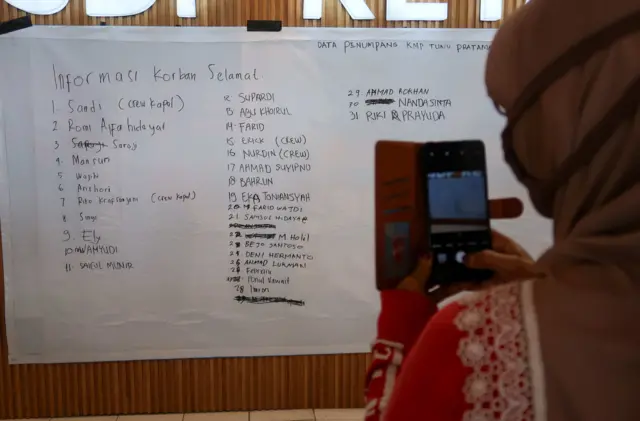 DATA PENUMPANG KMP TUNU PRATAMA
Informasi Korban Selamat
1. Sandi (Crew Kapal)
2 Romi Alfa hidayat
3 Saroji
4 Mansun
5
6 Anshori
7 (crew kapal)
8
9. Ely
10 WAHYUDI
11. SAIFUL MUNIR
12 SUPARDI
13 ABU KHOIRUL
14 FARID
15 ERICK (CREW)
16 NURDIN (CREW)
17 AHMAD SUYIPNO
18 BAHRUN
19 EKA TONIANSYAH
20 FARID WAJDI
21 SAMSUL HIDAYAT
M. Halil
BEJO SANTOSO
DENI HERMANTO
AHMAD LUKMAN
28 Imron
29 AHMAD ROKHAN
30 NANDA SINTA
31 RIKI PRAYUDA